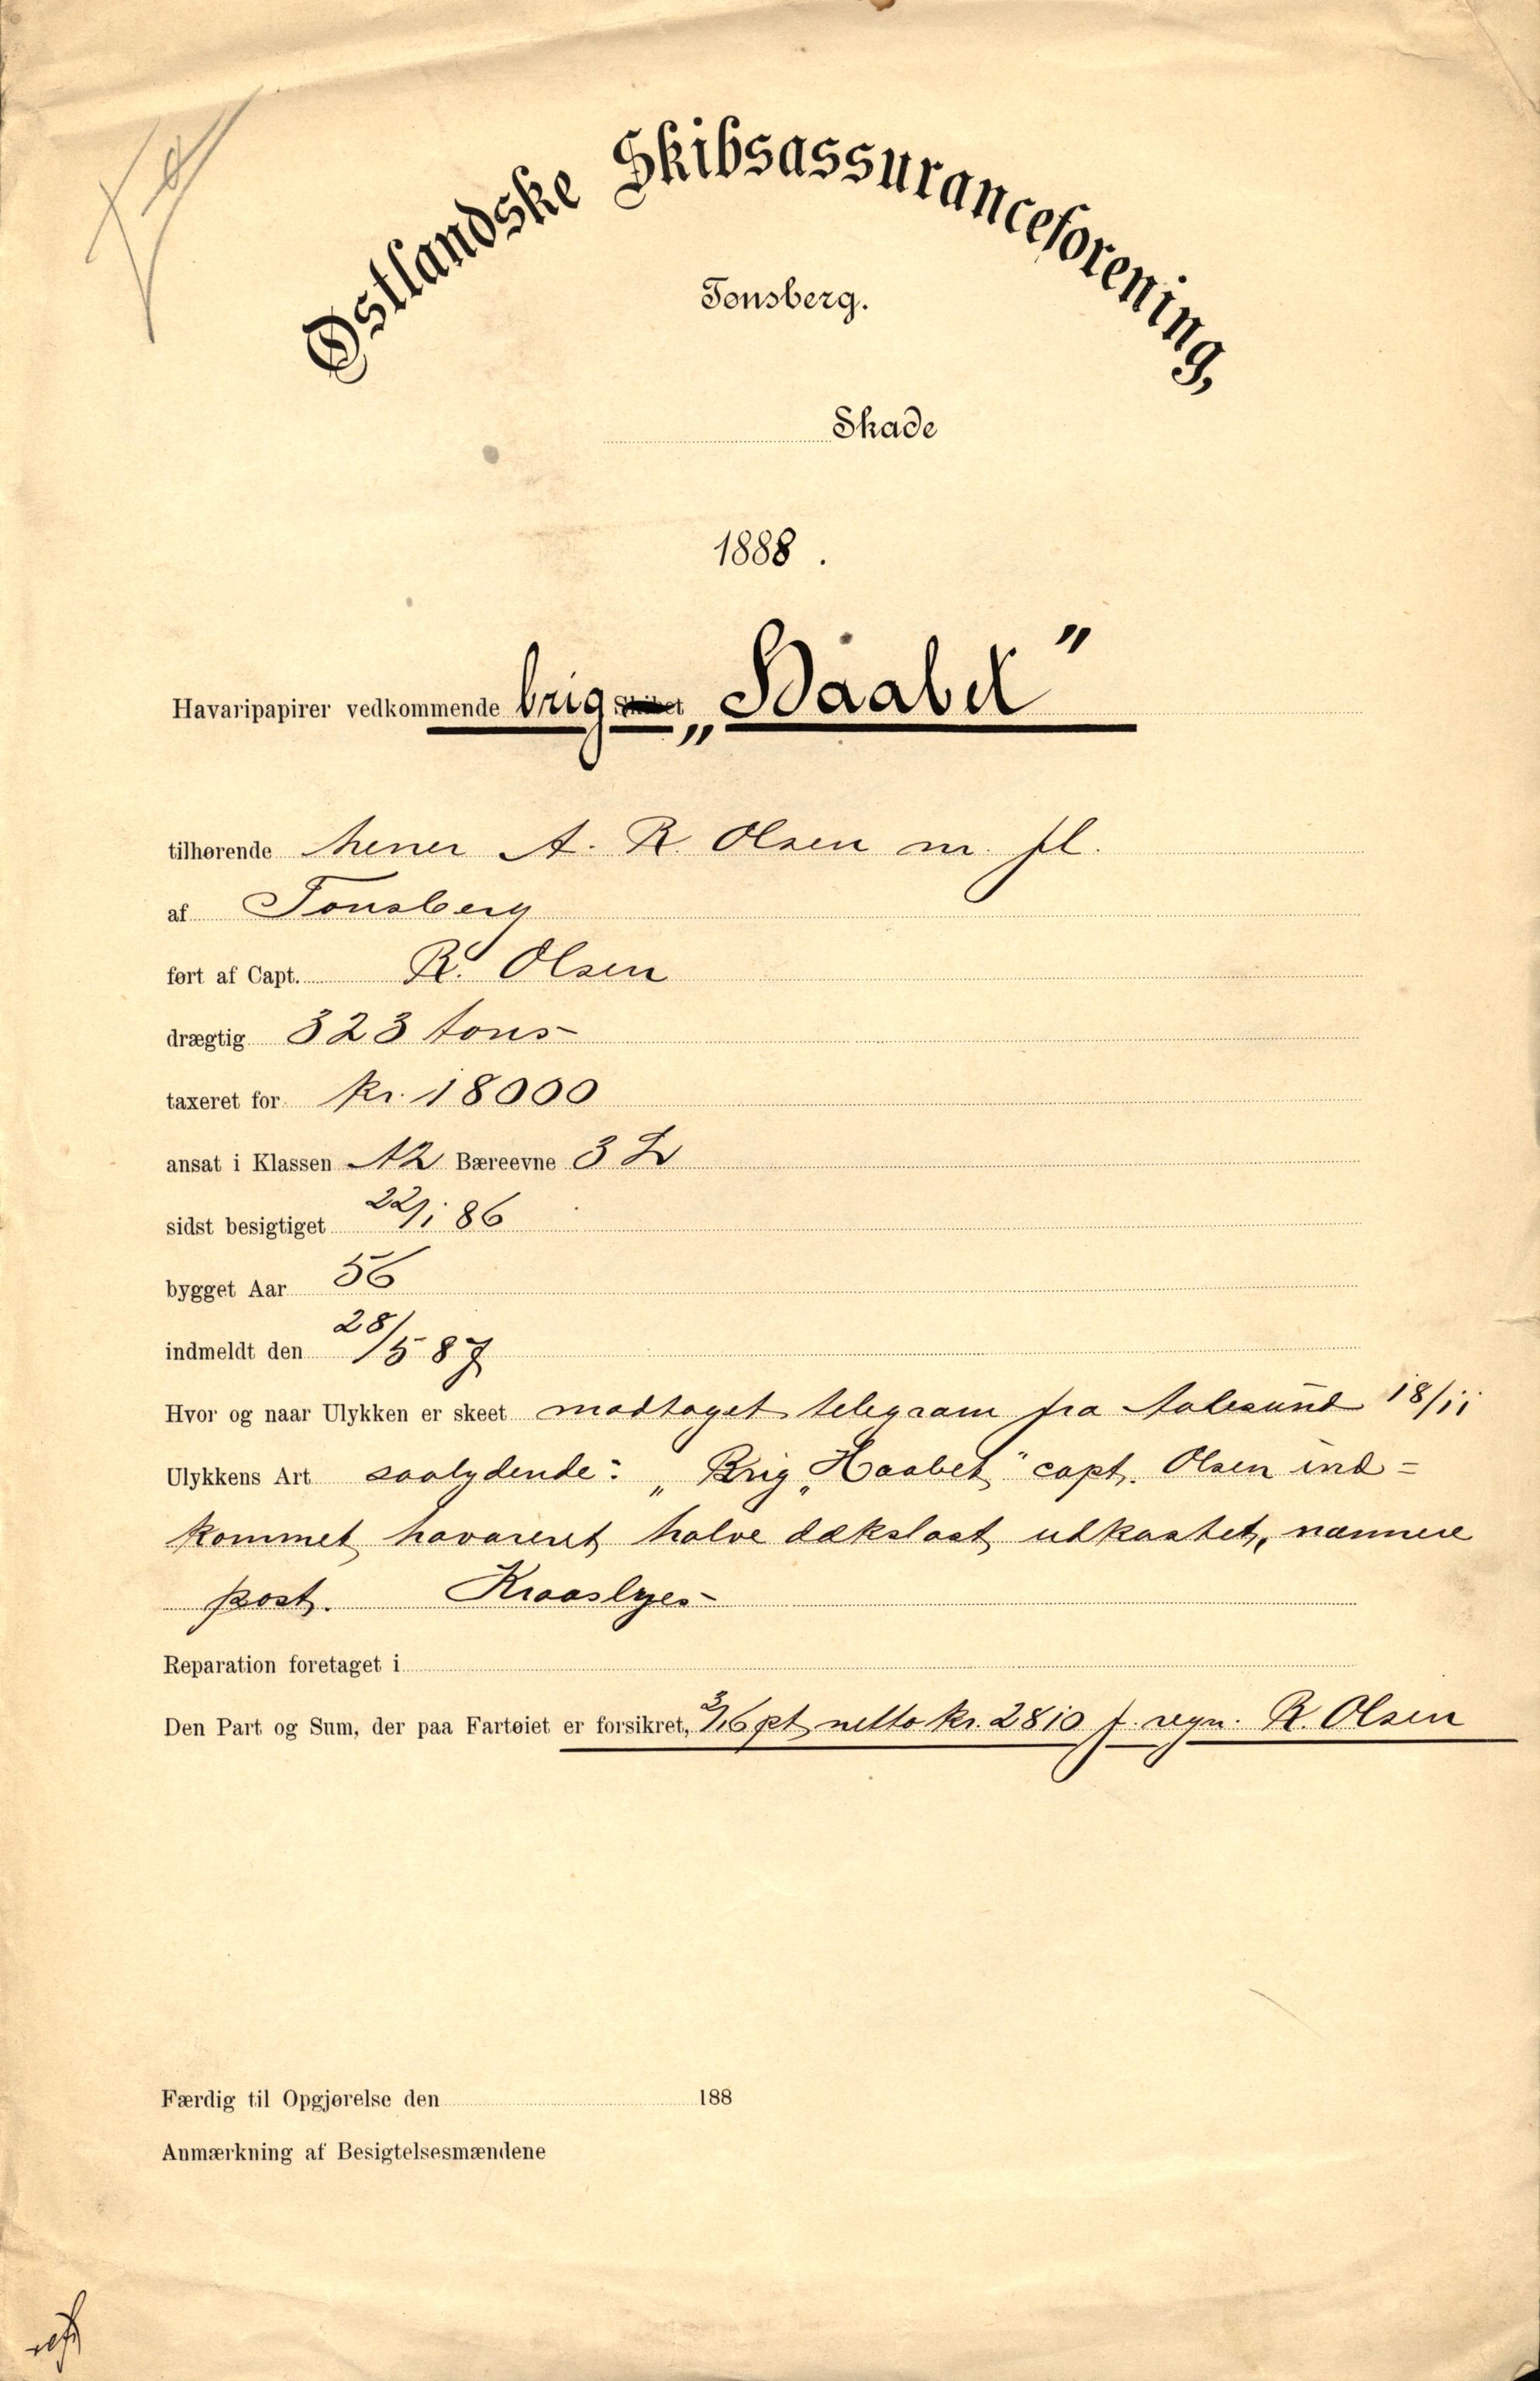 Østlandske Skibsassuranceforening,
Tønsberg.
Skade
1888.
Havaripapirer vedkommende brig Skibet „Haabet"
tilhørende herrer A. R. Olsen m. fl.
af Tønsberg
ført af Capt. R. Olsen
drægtig 323 tons
taxeret for kr. 18000
ansat i Klassen A2 Bæreevne 3 L
sidst besigtiget 22/1 86
bygget Aar 56
indmeldt den 28/5 87
Hvor og naar Ulykken er skeet modtaget telegram fra Aalesund 18/11
Ulykkens Art saalydende: „Brig „Haabet" capt. Olsen ind=
kommet havareret halve dækslast udkastet, nærmere
post.
Reparation foretaget i
Den Part og Sum, der paa Fartøiet er forsikret, 3/16 pt netto kr. 2810 f. regn. R. Olsen
Færdig til Opgjørelse den 188
Anmærkning af Besigtelsesmændene